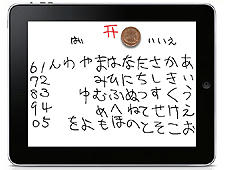 はい いいえ
61 んわやまはなたさかあ
72 みひにちしきい
83 ゆむふぬつすくう
94 めへねてせけえ
05 をよもほのとそこお